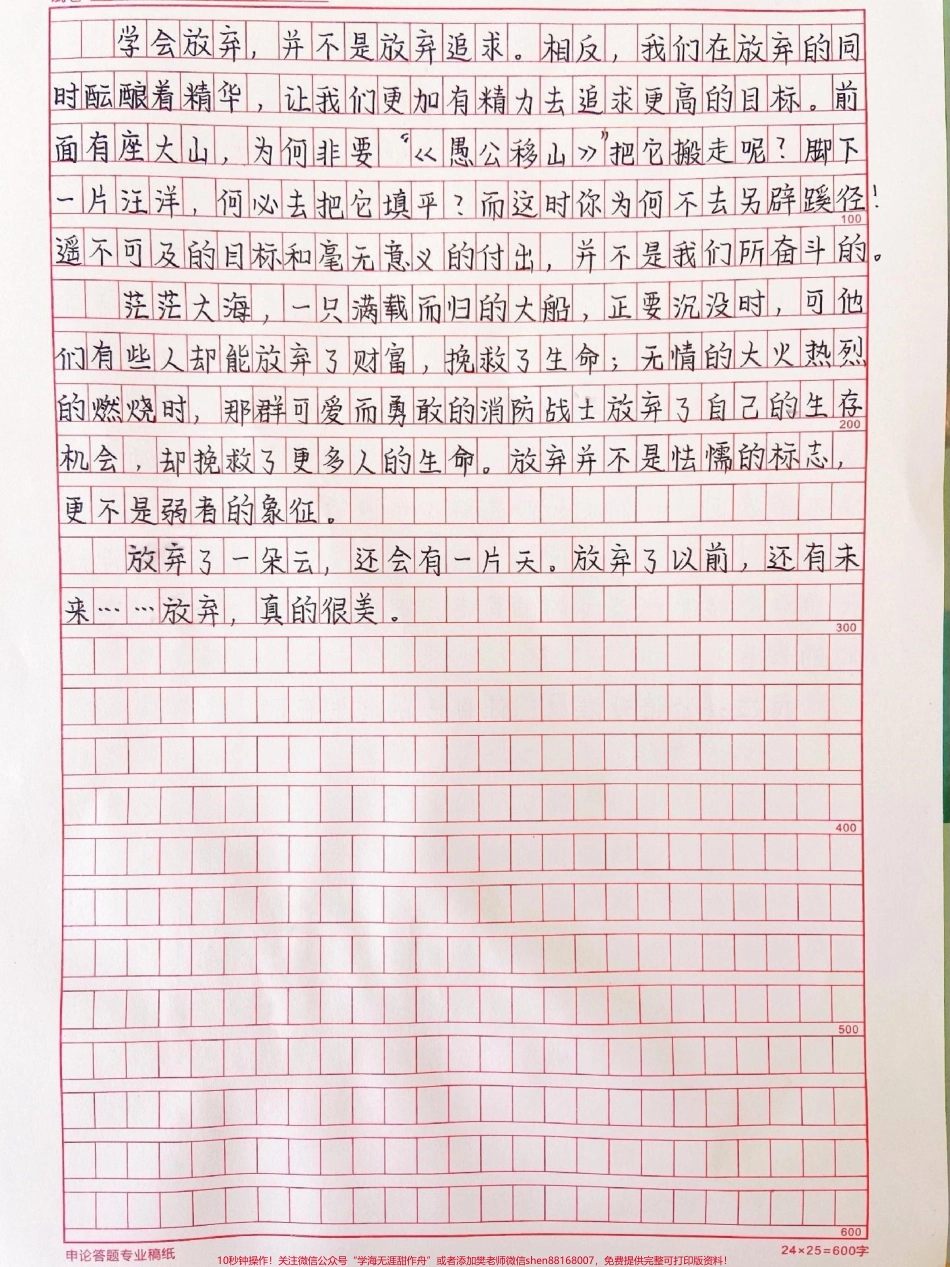 学会放弃，并不是放弃追求。相反，我们在放弃的同
时酝酿着精华，让我们更加有精力去追求更高的目标。前
面有座大山，为何非要“《愚公移山》”把它搬走呢？脚下
一片汪洋，何必去把它填平？而这时你为何不去另辟蹊径！
100
遥不可及的目标和毫无意义的付出，并不是我们所奋斗的。
茫茫大海，一只满载而归的大船，正要沉没时，可他
们有些人却能放弃了财富，挽救了生命；无情的大火热烈
的燃烧时，那群可爱而勇敢的消防战士放弃了自己的生存
200
机会，却挽救了更多人的生命。放弃并不是怯懦的标志，
更不是弱者的象征。
放弃了一朵云，还会有一片天。放弃了以前，还有未
来……放弃，真的很美。
300
400
500
600
申论答题专业稿纸
24×25=600字
10秒钟操作！关注微信公众号“学海无涯甜作舟”或者添加樊老师微信shen88168007，免费提供完整可打印版资料！